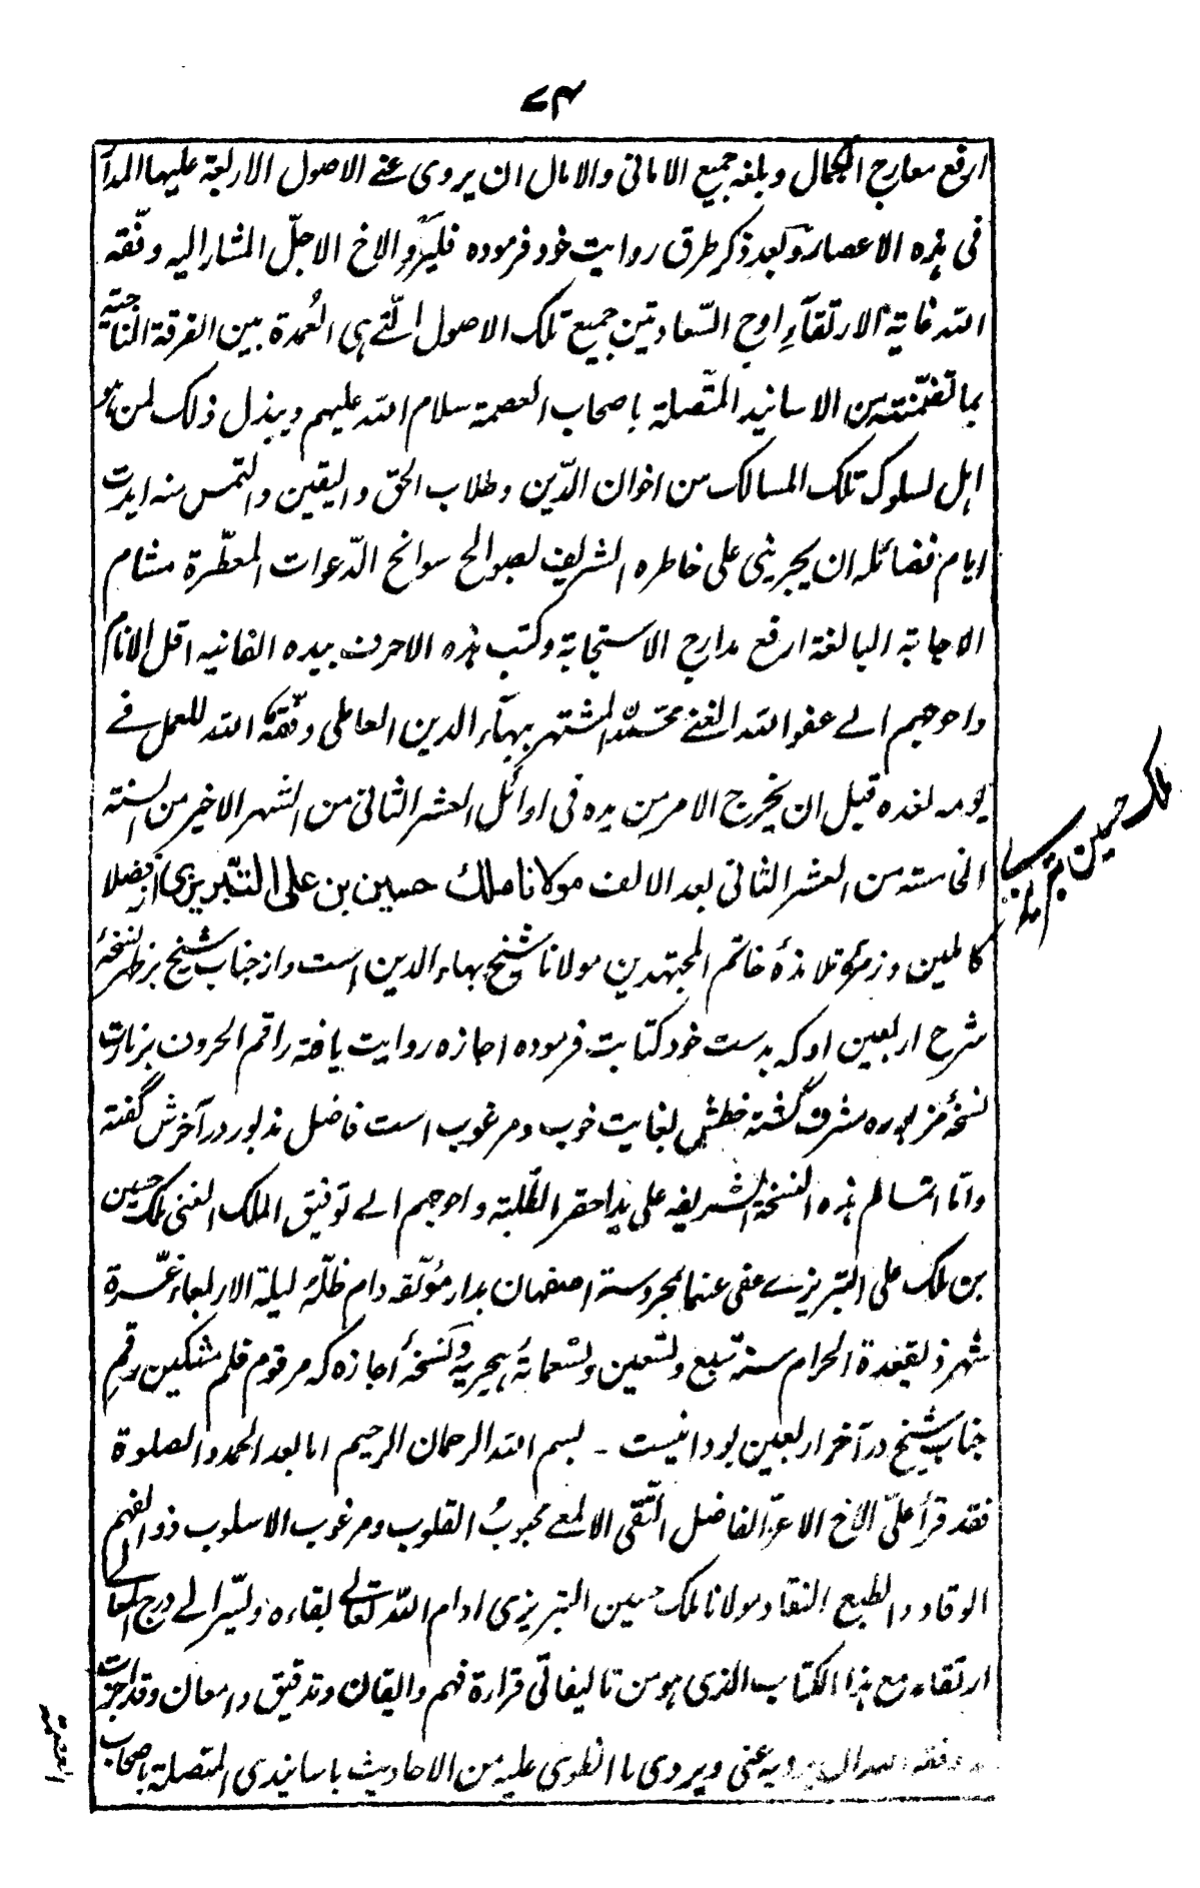 ٧٤
ارفع معارج الکمال وبلغه جمیع الامانی والامال ان یروی عنے الاصول الاربعة علیها المدار
فی هذه الاعصار وبعد ذکر طرق روایت خود فرموده فلیرو الاخ الاجلّ المشار الیه وفّقه
الله غایة الارتقآء اوج السّعادتین جمیع تلک الاصول الّتے هی العُمدة بین الفرقة الناجیة
بما تضمّنته من الاسانید المتّصلة باصحاب العصمة سلام الله علیهم ویبذل ذلک لمن هو
اهل لسلوک تلک المسالک من اخوان الدّین وطلاب الحق والیقین والتمس منه ایدت
ایام فضائله ان یجرینی علی خاطره الشریف لصوالح سوانح الدّعوات المعطّرة مشام
الاجابة البالغة ارفع مدارج الاستجابة وکتب هذه الاحرف بیده الفانیه اقل الانام
واحوجهم الے عفو الله الغنے محمّد المشتهر ببهآء الدین العاملی وفّقه الله للعمل فے
یومه لغده قبل ان یخرج الامر من یده فی اوائل العشر الثانی من الشهر الاخیر من السنة
الخامسته من العشر الثانی بعد الالف مولانا ملک حسین بن علی التبریزی از فضلا
کاملین وزمرۂ تلامذۂ خاتم المجتهدین مولانا شیخ بهاء الدین است واز جناب شیخ بر ظهر نسخۂ
شرح اربعین او که بدست خود کتابت فرموده اجازه روایت یافته راقم الحروف بزیارت
نسخۂ مزبوره مشرف گشته خطش بغایت خوب ومرغوب است فاضل مذبور در آخرش گفته
واما اتسالم هذه النسخة الشریفه علی ید احقر الطّلبة واحوجهم الے توفیق الملک الغنی ملک حسین
بن ملک علی التبریزے عفی عنهما بمحروسة اصفهان بدار مؤلّفه دام ظلّه لیلة الاربعاء غرّة
شهر ذیقعدة الحرام سنة تسع وتسعین وتسعمائة هجریة ونسخۂ اجازه که مرقوم قلم مشکین رقم
جناب شیخ در آخر اربعین بود انیست ۔ بسم الله الرحمان الرحیم اما بعد الحمد والصلوة
فقد قرأ علیّ الاخ الاعزّ الفاضل التّقی الالمعے محبوبُ القلوب ومرغوب الاسلوب ذو الفهم
الوقاد والطبع النقاد مولانا ملک حسین التبریزی ادام الله تعالے بقاءه ویسّر الے درج المعالے
ارتقاءه مع هذا الکتاب الذی هو من تالیفاتی قرارة فهم وایقان وتدقیق وامعان وقد اجزت
له وفقه الله ان یرویه عنی ویروی ما انطوی علیه من الاحادیث باسانیدی المتصلة باصحاب
ملک حسین تبریزے
العصمة